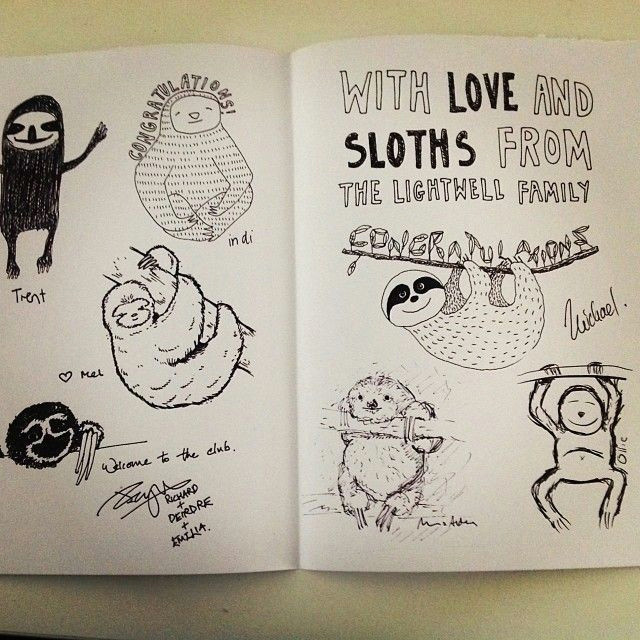 CONGRATULATIONS!
Trent
indi
♡ Mel
Welcome to the club.
RICHARD
+
DEIRDRE
+
EMILIA.
WITH LOVE AND
SLOTHS FROM
THE LIGHTWELL FAMILY
CONGRATULATIONS
Michael.
Ollie